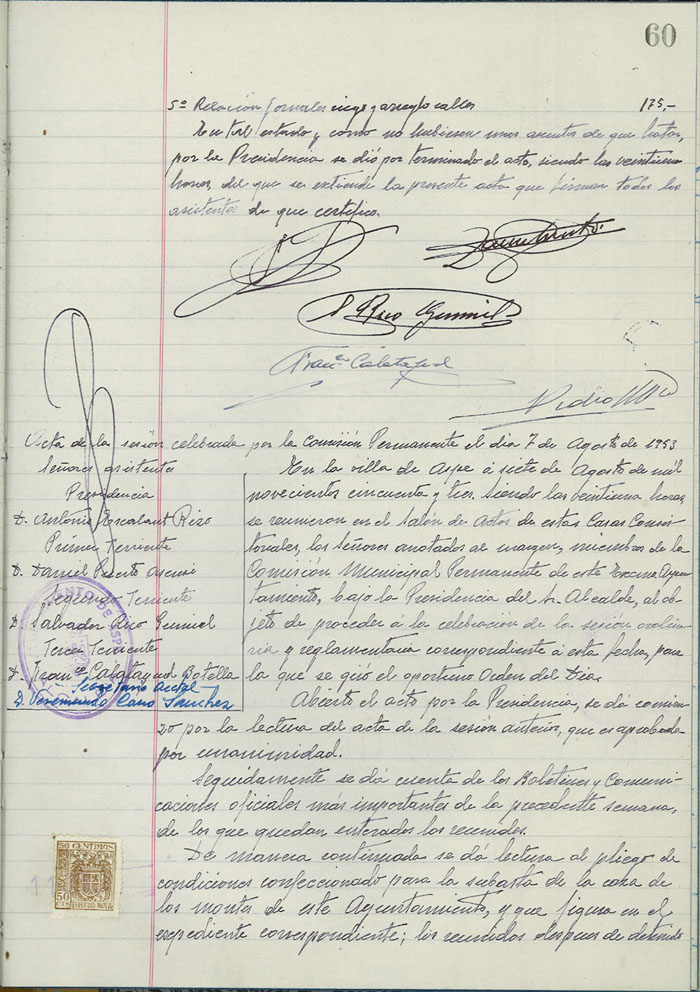 60
5º Relación jornales riego y arreglo calles 175,-
En tal estado y como no hubiesen mas asuntos de que tratar,
por la Presidencia se dió por terminado el acto, siendo las veintiuna
horas, del que se extiende la presente acta que firman todos los
asistentes de que certifico.
S. Rico Gumiel
Franco Calatayud
Pedro
Acta de la sesión celebrada por la Comisión Permanente el día 7 de Agosto de 1953
Señores asistentes
Presidencia
D. Antonio Escolant Rizo
Primer Teniente
D. Daniel Puerto Asensi
Segundo Teniente
D. Salvador Rico Gumiel
Tercer Teniente
D. Franco Calatayud Botella
Secretario Acctal
D. Veremundo Cano Sánchez
En la villa de Aspe á siete de Agosto de mil
novecientos cincuenta y tres. Siendo las veintiuna horas,
se reunieron en el Salón de Actos de estas Casas Consis-
toriales, los señores anotados al margen, miembros de la
Comisión Municipal Permanente de este Excmo. Ayun-
tamiento, bajo la Presidencia del Sr. Alcalde, al ob-
jeto de proceder á la celebración de la sesión ordina-
ria y reglamentaria correspondiente á esta fecha, para
la que se giró el oportuno Orden del Día.
Abierto el acto por la Presidencia, se dá comien-
zo por la lectura del acta de la sesión anterior, que es aprobada
por unanimidad.
Seguidamente se dá cuenta de los Boletines y Comuni-
caciones oficiales más importantes de la precedente semana,
de los que quedan enterados los reunidos.
De manera continuada se dá lectura al pliego de
condiciones confeccionado para la subasta de la caza de
los montes de este Ayuntamiento, y que figura en el
expediente correspondiente; los reunidos despues de detenido
50 CENTIMOS
50
CTS
ESPECIAL MOVIL